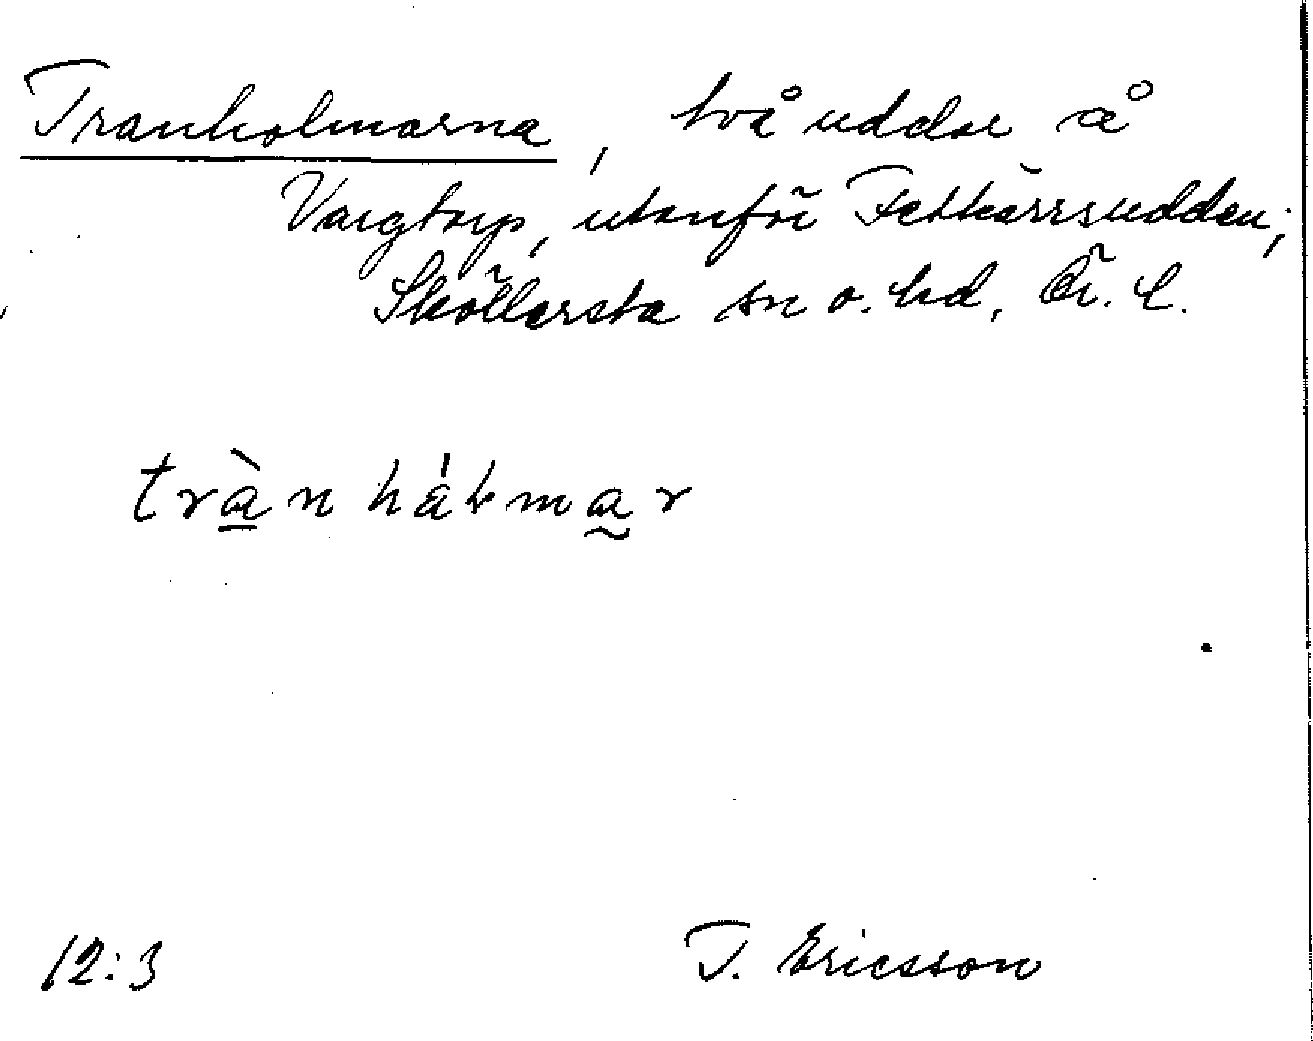 Tranholmarna, två uddar å
Vargtorp, utanför Fetkärrsudden;
Sköllersta sn o. hd, Ör. l.
trànhǻƚmar
12:3
T. Ericsson